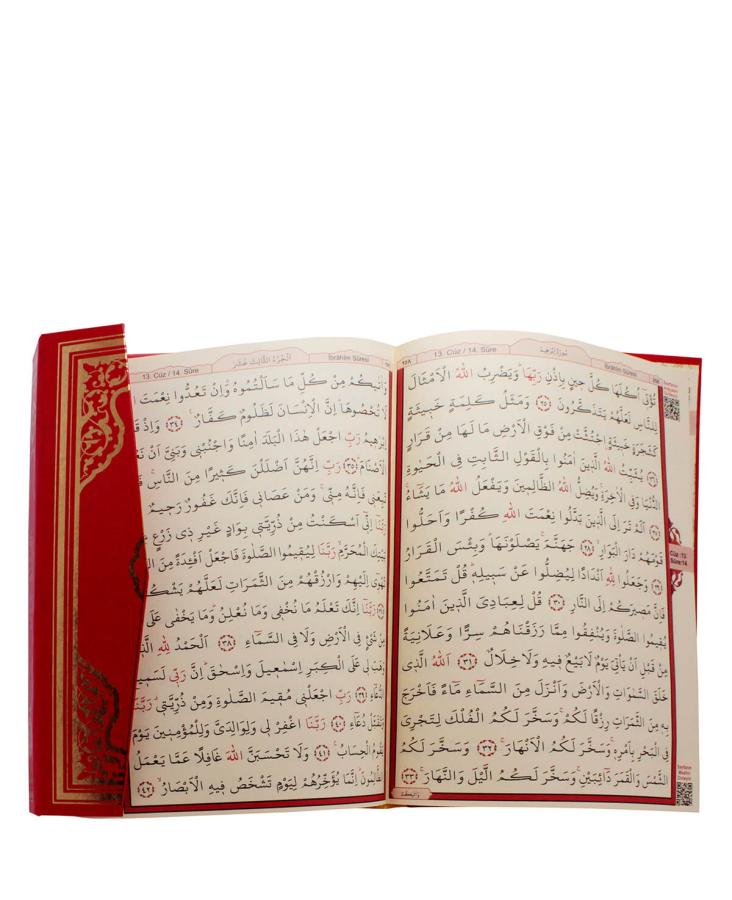 13. Cüz / 14. Sûre
سُورَةُ اِبْرٰهِيمَ
İbrâhîm Sûresi
تُؤْتٖٓي اُكُلَهَا كُلَّ حٖينٍ بِاِذْنِ رَبِّهَاۜ وَيَضْرِبُ اللّٰهُ الْاَمْثَالَ
لِلنَّاسِ لَعَلَّهُمْ يَتَذَكَّرُونَ ﴿٢٥﴾ وَمَثَلُ كَلِمَةٍ خَبٖيثَةٍ
كَشَجَرَةٍ خَبٖيثَةٍۨ اجْتُثَّتْ مِنْ فَوْقِ الْاَرْضِ مَا لَهَا مِنْ قَرَارٍ
﴿٢٦﴾ يُثَبِّتُ اللّٰهُ الَّذٖينَ اٰمَنُوا بِالْقَوْلِ الثَّابِتِ فِي الْحَيٰوةِ
الدُّنْيَا وَفِي الْاٰخِرَةِۚ وَيُضِلُّ اللّٰهُ الظَّالِمٖينَ وَيَفْعَلُ اللّٰهُ مَا يَشَٓاءُ۟
﴿٢٧﴾ اَلَمْ تَرَ اِلَى الَّذٖينَ بَدَّلُوا نِعْمَتَ اللّٰهِ كُفْرًا وَاَحَلُّوا
قَوْمَهُمْ دَارَ الْبَوَارِۙ ﴿٢٨﴾ جَهَنَّمَۚ يَصْلَوْنَهَاۜ وَبِئْسَ الْقَرَارُ
﴿٢٩﴾ وَجَعَلُوا لِلّٰهِ اَنْدَادًا لِيُضِلُّوا عَنْ سَبٖيلِهٖۜ قُلْ تَمَتَّعُوا
فَاِنَّ مَصٖيرَكُمْ اِلَى النَّارِ ﴿٣٠﴾ قُلْ لِعِبَادِيَ الَّذٖينَ اٰمَنُوا
يُقٖيمُوا الصَّلٰوةَ وَيُنْفِقُوا مِمَّا رَزَقْنَاهُمْ سِرًّا وَعَلَانِيَةً
مِنْ قَبْلِ اَنْ يَأْتِيَ يَوْمٌ لَا بَيْعٌ فٖيهِ وَلَا خِلَالٌ ﴿٣١﴾ اَللّٰهُ الَّذٖي
خَلَقَ السَّمٰوَاتِ وَالْاَرْضَ وَاَنْزَلَ مِنَ السَّمَٓاءِ مَٓاءً فَاَخْرَجَ
بِهٖ مِنَ الثَّمَرَاتِ رِزْقًا لَكُمْۚ وَسَخَّرَ لَكُمُ الْفُلْكَ لِتَجْرِيَ
فِي الْبَحْرِ بِاَمْرِهٖۚ وَسَخَّرَ لَكُمُ الْاَنْهَارَۚ ﴿٣٢﴾ وَسَخَّرَ لَكُمُ
الشَّمْسَ وَالْقَمَرَ دَٓائِبَيْنِۚ وَسَخَّرَ لَكُمُ الَّيْلَ وَالنَّهَارَۚ ﴿٣٣﴾
وَاٰتٰيكُمْ
Cüz :13
Sûre:14
13. Cüz / 14. Sûre
اَلْجُزْءُ الثَّالِثَ عَشَرَ
İbrâhîm Sûresi
وَاٰتٰيكُمْ مِنْ كُلِّ مَا سَاَلْتُمُوهُۜ وَاِنْ تَعُدُّوا نِعْمَتَ
لَا تُحْصُوهَاۜ اِنَّ الْاِنْسَانَ لَظَلُومٌ كَفَّارٌ۟ ﴿٣٤﴾ وَاِذْ
اِبْرٰهٖيمُ رَبِّ اجْعَلْ هٰذَا الْبَلَدَ اٰمِنًا وَاجْنُبْنٖي وَبَنِيَّ اَنْ
الْاَصْنَامَۜ ﴿٣٥﴾ رَبِّ اِنَّهُنَّ اَضْلَلْنَ كَثٖيرًا مِنَ النَّاسِۚ
تَبِعَنٖي فَاِنَّهُ مِنّٖيۚ وَمَنْ عَصَانٖي فَاِنَّكَ غَفُورٌ رَحٖيمٌ
رَبَّنَٓا اِنّٖٓي اَسْكَنْتُ مِنْ ذُرِّيَّتٖي بِوَادٍ غَيْرِ ذٖي زَرْعٍ
بَيْتِكَ الْمُحَرَّمِۙ رَبَّنَا لِيُقٖيمُوا الصَّلٰوةَ فَاجْعَلْ اَفْـِٔدَةً مِنَ
تَهْوٖٓي اِلَيْهِمْ وَارْزُقْهُمْ مِنَ الثَّمَرَاتِ لَعَلَّهُمْ
رَبَّنَٓا اِنَّكَ تَعْلَمُ مَا نُخْفٖي وَمَا نُعْلِنُۜ وَمَا يَخْفٰى عَلَى
مِنْ شَيْءٍ فِي الْاَرْضِ وَلَا فِي السَّمَٓاءِ ﴿٣٨﴾ اَلْحَمْدُ لِلّٰهِ
وَهَبَ لٖي عَلَى الْكِبَرِ اِسْمٰعٖيلَ وَاِسْحٰقَۜ اِنَّ رَبّٖي لَسَمٖيعُ
الدُّعَٓاءِ ﴿٣٩﴾ رَبِّ اجْعَلْنٖي مُقٖيمَ الصَّلٰوةِ وَمِنْ ذُرِّيَّتٖيۗ رَبَّنَا
وَتَقَبَّلْ دُعَٓاءِ ﴿٤٠﴾ رَبَّنَا اغْفِرْ لٖي وَلِوَالِدَيَّ وَلِلْمُؤْمِنٖينَ يَوْمَ
يَقُومُ الْحِسَابُ۟ ﴿٤١﴾ وَلَا تَحْسَبَنَّ اللّٰهَ غَافِلًا عَمَّا يَعْمَلُ
الظَّالِمُونَۜ اِنَّمَا يُؤَخِّرُهُمْ لِيَوْمٍ تَشْخَصُ فٖيهِ الْاَبْصَارُۙ ﴿٤٢﴾